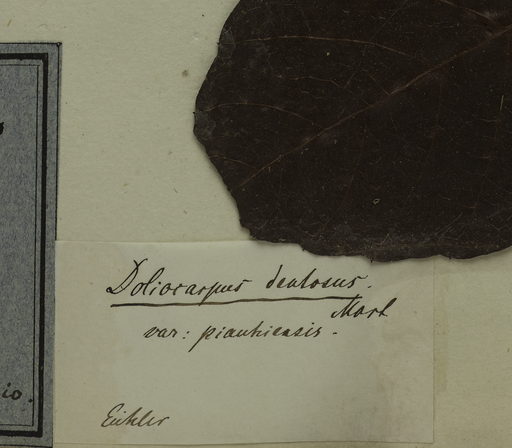 Doliocarpus dentosus.
Mart
var: piauhiensis.
Eichler
io.